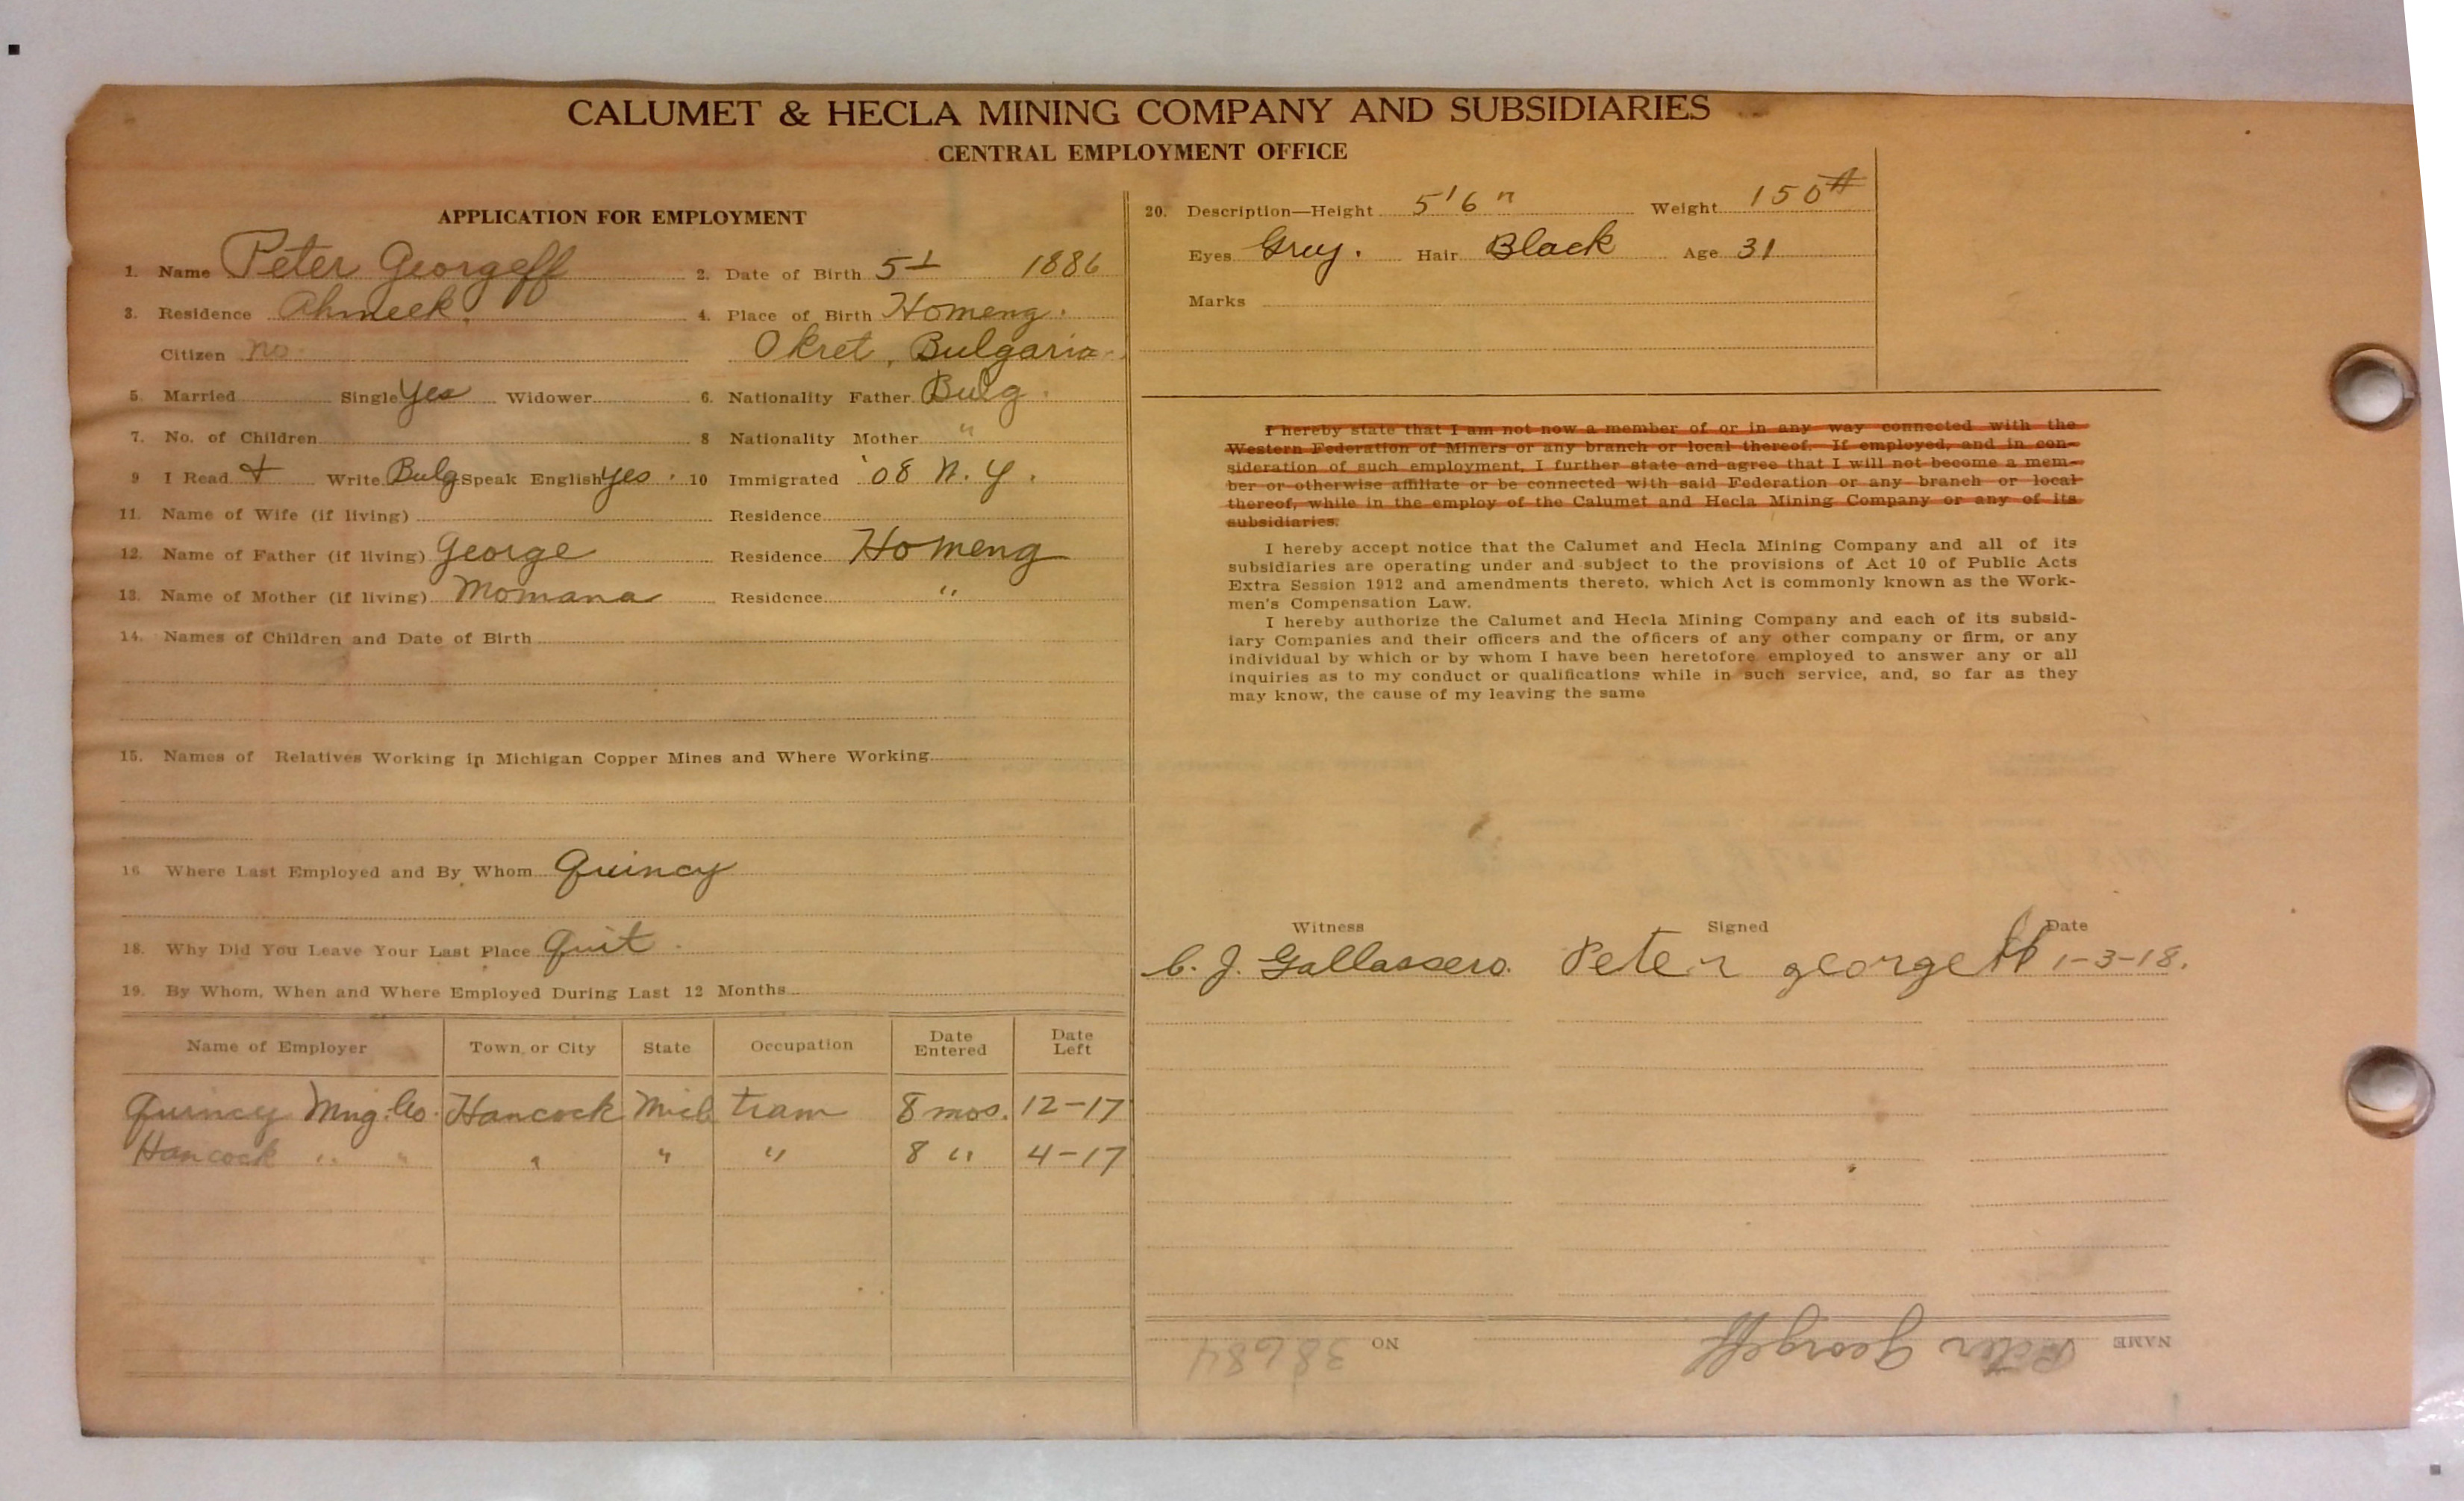 CALUMET & HECLA MINING COMPANY AND SUBSIDIARIES
CENTRAL EMPLOYMENT OFFICE
APPLICATION FOR EMPLOYMENT
1. Name Peter Georgeff 2. Date of Birth 5 1886
3. Residence Ahmeek. 4. Place of Birth Homeng.
Citizen no. Okret, Bulgaria
5. Married Single Yes Widower 6. Nationality Father Bulg.
7. No. of Children 8 Nationality Mother "
9 I Read + Write Bulg Speak English yes. 10 Immigrated '08 N.Y.
11. Name of Wife (if living) Residence
12. Name of Father (if living) George Residence Homeng
13. Name of Mother (if living) Momana Residence "
14. Names of Children and Date of Birth
15. Names of Relatives Working in Michigan Copper Mines and Where Working
16 Where Last Employed and By Whom Quincy
18. Why Did You Leave Your Last Place Quit.
19. By Whom, When and Where Employed During Last 12 Months
Name of Employer Town or City State Occupation Date Entered Date Left
Quincy Mng. Co. Hancock Mich tram 8 mos. 12-17
Hancock " " " " " 8 " 4-17
20. Description—Height 5'6" Weight 150#
Eyes Grey. Hair Black Age 31
Marks
I hereby state that I am not now a member of or in any way connected with the
Western Federation of Miners or any branch or local thereof. If employed, and in con-
sideration of such employment, I further state and agree that I will not become a mem-
ber or otherwise affiliate or be connected with said Federation or any branch or local
thereof, while in the employ of the Calumet and Hecla Mining Company or any of its
subsidiaries.
I hereby accept notice that the Calumet and Hecla Mining Company and all of its
subsidiaries are operating under and subject to the provisions of Act 10 of Public Acts
Extra Session 1912 and amendments thereto, which Act is commonly known as the Work-
men's Compensation Law.
I hereby authorize the Calumet and Hecla Mining Company and each of its subsid-
iary Companies and their officers and the officers of any other company or firm, or any
individual by which or by whom I have been heretofore employed to answer any or all
inquiries as to my conduct or qualifications while in such service, and, so far as they
may know, the cause of my leaving the same
Witness Signed Date
C. J. Gallassero. Peter georgeff 1-3-18.
NAME Peter Georgeff NO 38684